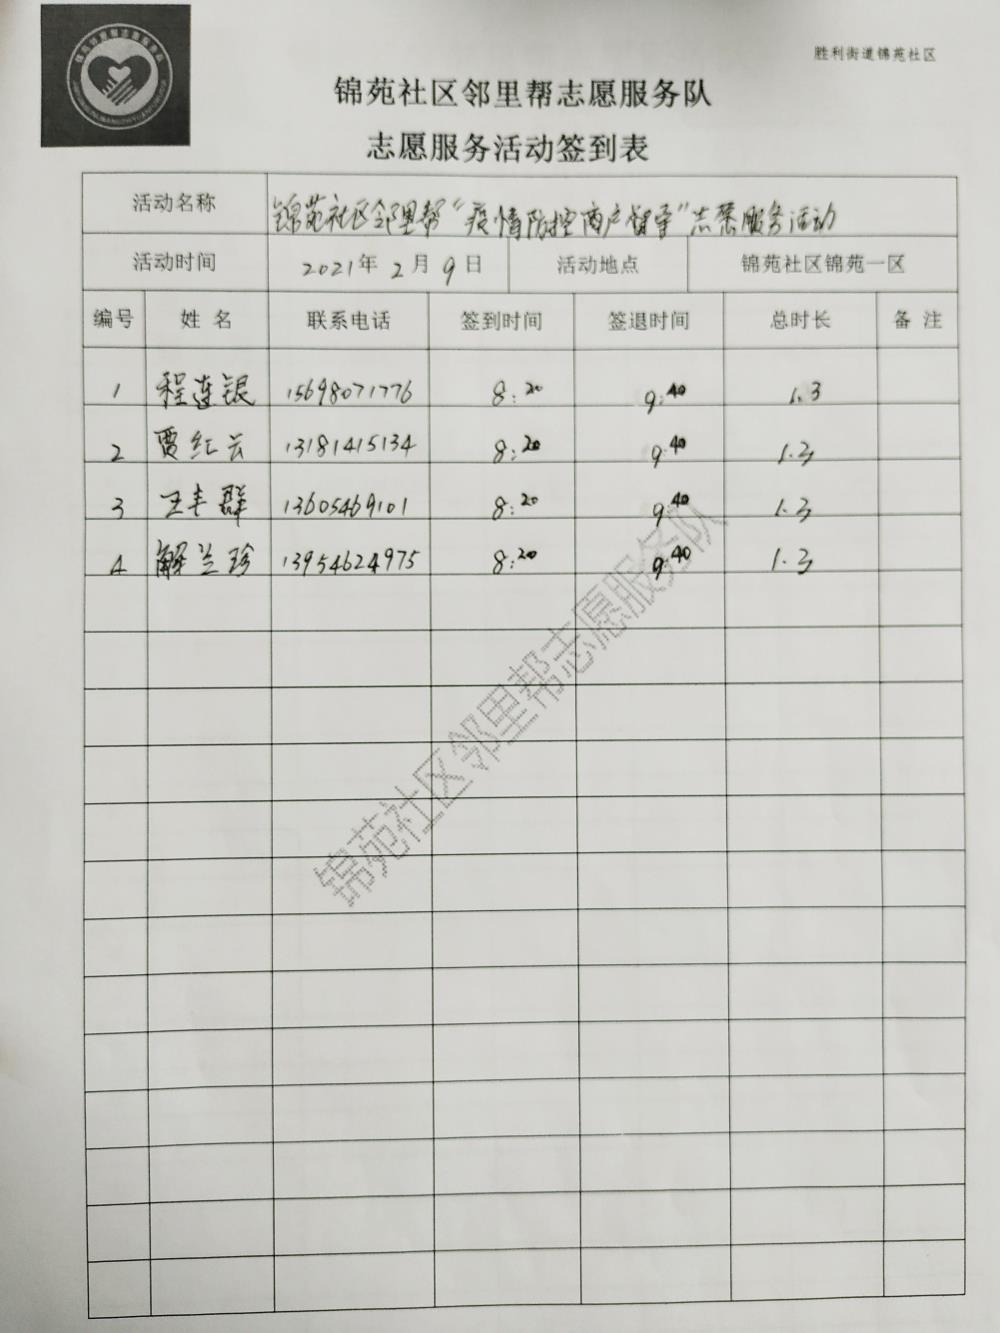 胜利街道锦苑社区
锦苑社区邻里帮志愿服务队
志愿服务活动签到表
活动名称 锦苑社区邻里帮“疫情防控商户督导”志愿服务活动
活动时间 2021年 2月 9日 活动地点 锦苑社区锦苑一区
编号 姓名 联系电话 签到时间 签退时间 总时长 备注
1 程连银 15698071776 8:20 9:40 1.3
2 贾红云 13181415134 8:20 9:40 1.3
3 王丰群 13605469101 8:20 9:40 1.3
4 解兰珍 13954624975 8:20 9:40 1.3
锦苑社区邻里帮志愿服务队